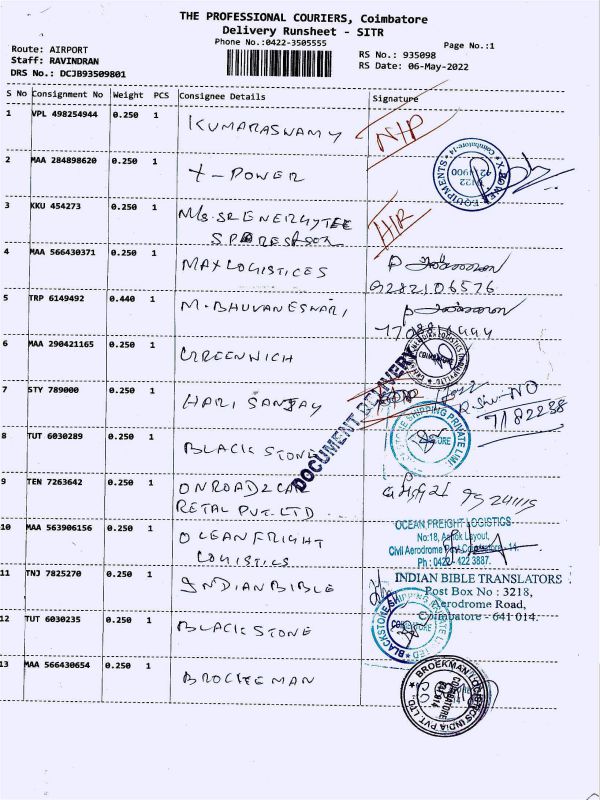 THE PROFESSIONAL COURIERS, Coimbatore
Delivery Runsheet - SITR
Phone No.:0422-3505555
Page No.:1
Route: AIRPORT
Staff: RAVINDRAN
DRS No.: DCJB93509801
RS No.: 935098
RS Date: 06-May-2022
S No Consignment No Weight PCS Consignee Details Signature
1 VPL 498254944 0.250 1 KUMARASWAMY
2 MAA 284898620 0.250 1 X-POWER
3 KKU 454273 0.250 1 M/s. SR ENERGYTEE
4 MAA 566430371 0.250 1 MAXLOGISTICES
9282106576
5 TRP 6149492 0.440 1 M. BHUVANESWARI,
6 MAA 290421165 0.250 1 GREENWICH
COIMBATORE
7 STY 789000 0.250 1 HARI SANJAY
7182238
DOCUMENT DELIVERY
8 TUT 6030289 0.250 1 BLACKSTONE
BLACKSTONE SHIPPING PRIVATE LIMITED
9 TEN 7263642 0.250 1 ONROADZCAR
RETAL PVT. LTD
10 MAA 563906156 0.250 1 OCEANFRIGHT
LOGISTICS
OCEAN FREIGHT LOGISTICS
No:18, Ashok Layout,
Civil Aerodrome Post, Coimbatore - 14.
Ph : 0422 - 422 3887.
11 TNJ 7825270 0.250 1 INDIANBIBLE
INDIAN BIBLE TRANSLATORS
Post Box No : 3218,
Aerodrome Road,
Coimbatore - 641 014.
12 TUT 6030235 0.250 1 BLACKSTONE
BLACKSTONE SHIPPING PRIVATE LIMITED
COIMBATORE
13 MAA 566430654 0.250 1 BROCKEMAN
BROEKMAN LOGISTICS INDIA PVT. LTD.
COIMBATORE